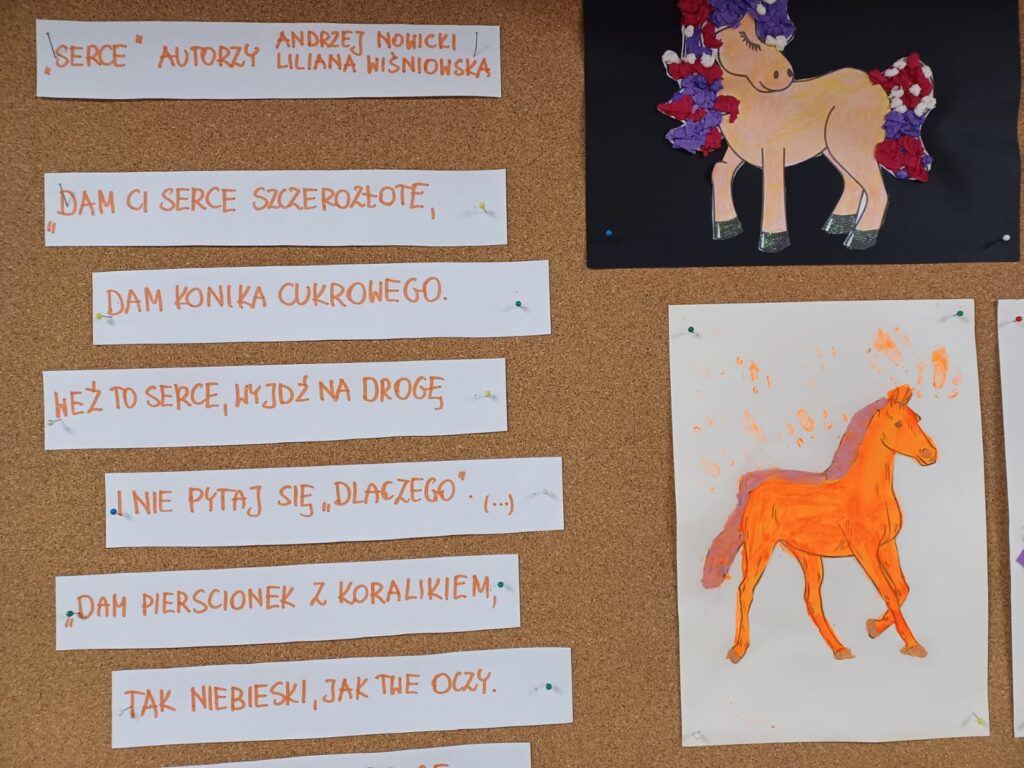 „SERCE" AUTORZY ANDRZEJ NOWICKI
LILIANA WIŚNIOWSKA
„DAM CI SERCE SZCZEROZŁOTE,
DAM KONIKA CUKROWEGO.
WEŹ TO SERCE, WYJDŹ NA DROGĘ
I NIE PYTAJ SIĘ „DLACZEGO". (...)
„DAM PIERSCIONEK Z KORALIKIEM,
TAK NIEBIESKI, JAK TWE OCZY.